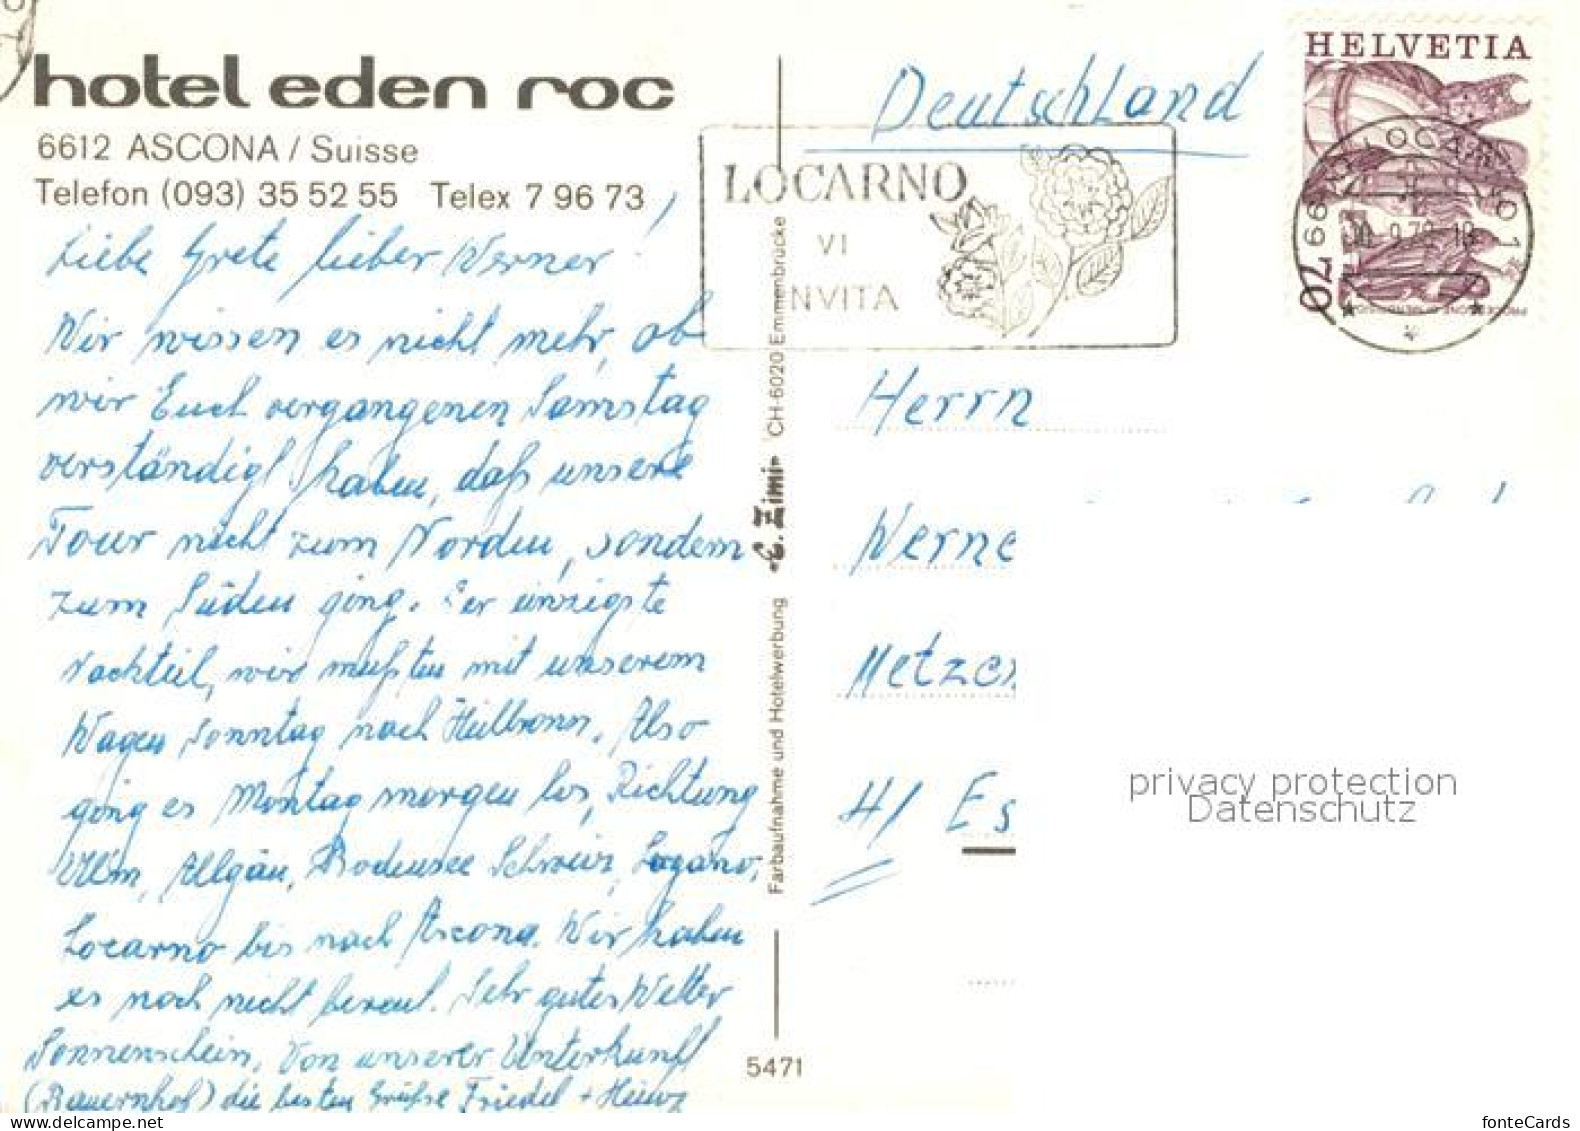 hotel eden roc
6612 ASCONA / Suisse
Telefon (093) 35 52 55 Telex 7 96 73
Liebe Grete lieber Werner!
Wir wissen es nicht mehr, ob
wir Euch vergangenen Samstag
verständigt haben, daß unsere
Tour nicht zum Norden, sondern
zum Süden ging. Der einzigste
Nachteil, wir mußten mit unserem
Wagen Sonntag nach Heilbronn. Also
ging es Montag morgen los, Richtung
Ulm, Allgäu, Bodensee Schweiz, Lugano,
Locarno bis nach Ascona. Wir haben
es noch nicht bereut. Sehr gutes Wetter
Sonnenschein. Von unserer Unterkunft
(Bauernhof) die besten Grüße Friedel + Heinz
Farbaufnahme und Hotelwerbung E. Zimi CH-6020 Emmenbrücke
5471
Deutschland
LOCARNO
VI
INVITA
HELVETIA
70
LOCARNO 1
Herrn
Werne
Metze
4/ Es
privacy protection
Datenschutz
fonteCards